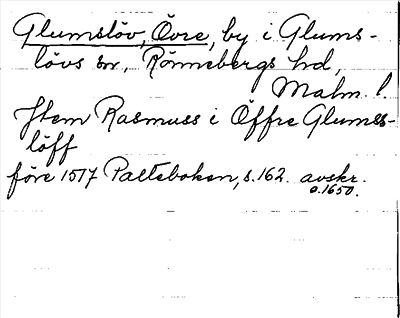 Glumslöv, Övre, by i Glums-
lövs sn, Rönnebergs hd,
Malm. l.
Jtem Rasmuss i Öffre Glumss-
löff
före 1517 Palteboken, s. 162. avskr.
o. 1650.